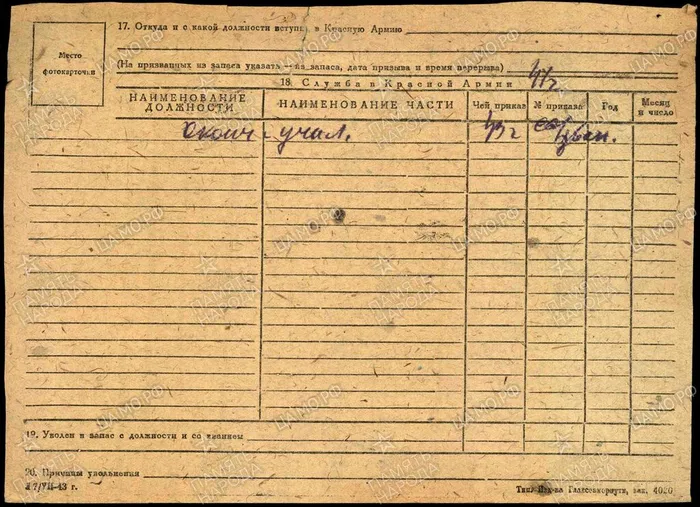 Место
фотокарточки
17. Откуда и с какой должности вступил в Красную Армию
(На призванных из запаса указать — из запаса, дата призыва и время перерыва)
18. Служба в Красной Армии
НАИМЕНОВАНИЕ ДОЛЖНОСТИ НАИМЕНОВАНИЕ ЧАСТИ Чей приказ № приказа Год Месяц и число
Оконч. учил. 43 г
19. Уволен в запас с должности и со званием
20. Причины увольнения
ПАМЯТЬ НАРОДА
ЦАМО.РФ